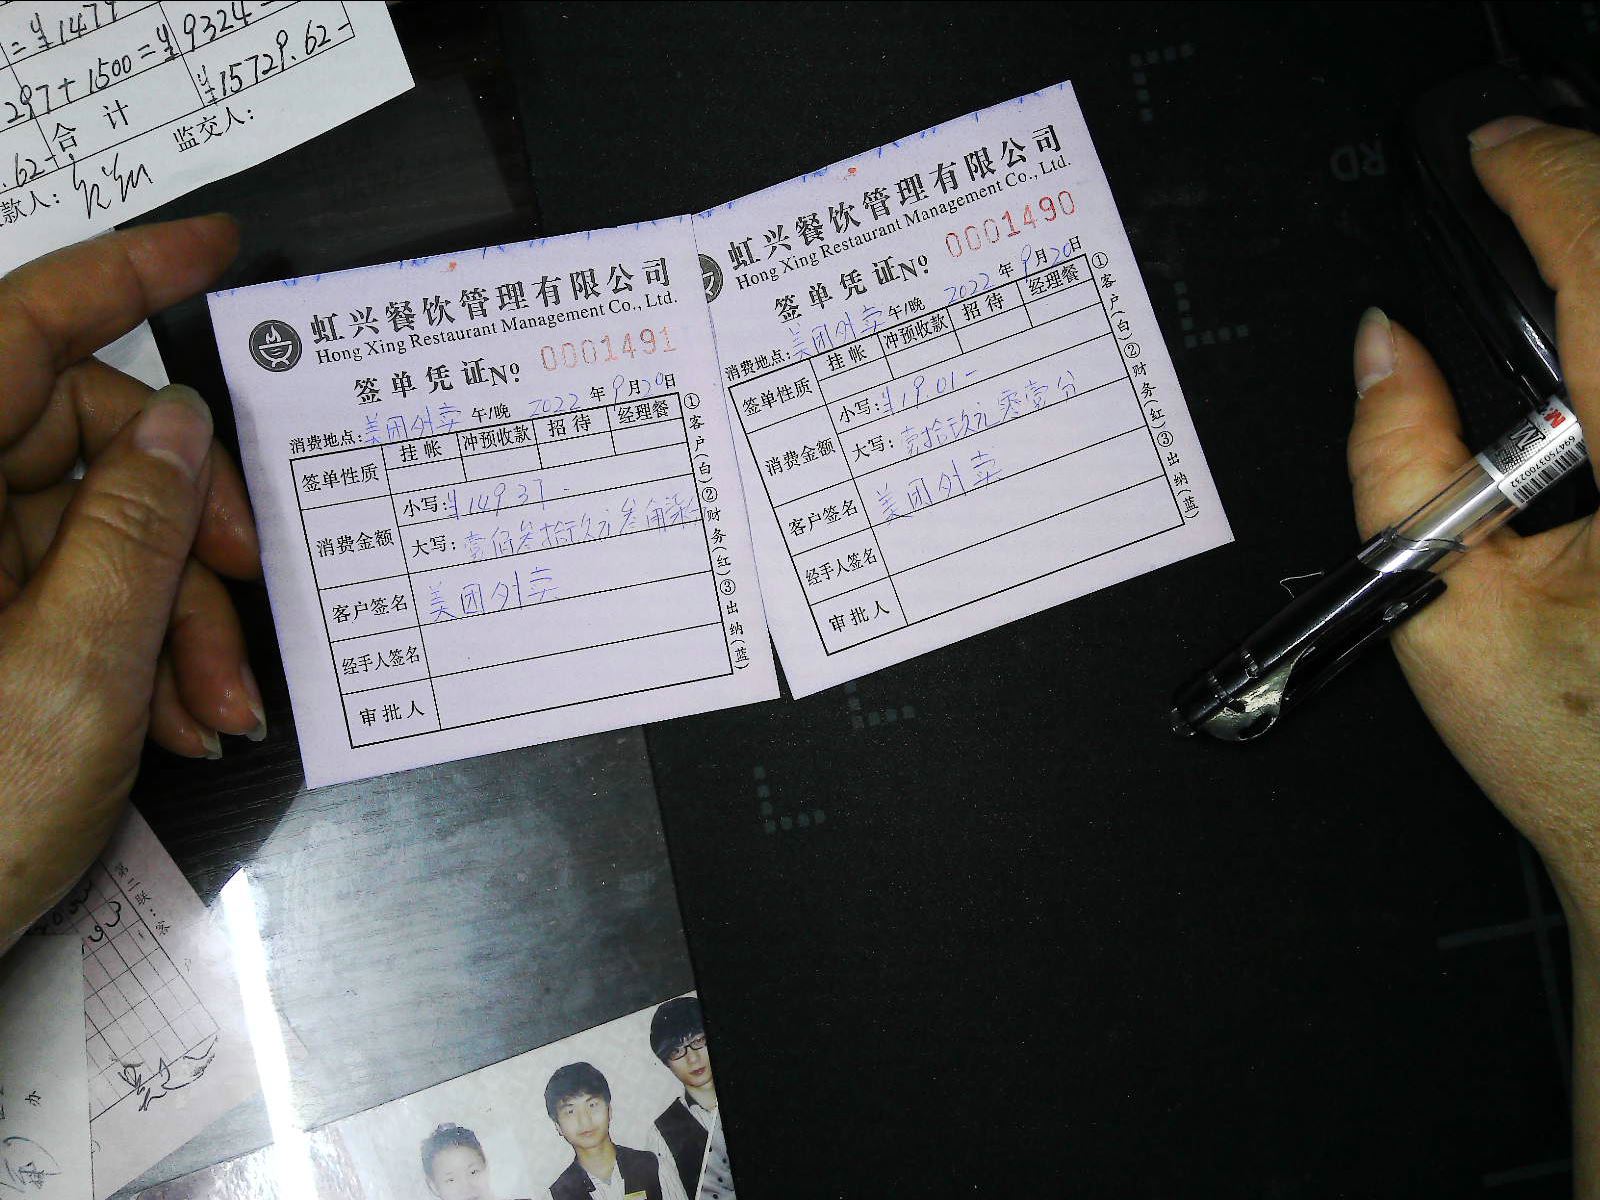 =¥1479
297+1500=¥9324-
合 计 ¥15729.62-
.62-
款人: 监交人:
虹兴餐饮管理有限公司
Hong Xing Restaurant Management Co., Ltd.
签单凭证№ 0001491
消费地点: 美团外卖 午/晚 2022 年 9月20日
签单性质 挂帐 冲预收款 招待 经理餐
消费金额 小写: ¥149.37-
大写: 壹佰叁拾玖元叁角柒分
客户签名 美团外卖
经手人签名
审批人
①客户(白)②财务(红)③出纳(蓝)
虹兴餐饮管理有限公司
Hong Xing Restaurant Management Co., Ltd.
签单凭证№ 0001490
消费地点: 美团外卖 午/晚 2022 年 9月20日
签单性质 挂帐 冲预收款 招待 经理餐
消费金额 小写: ¥19.01-
大写: 壹拾玖元零壹分
客户签名 美团外卖
经手人签名
审批人
①客户(白)②财务(红)③出纳(蓝)
RD
第二联:客
办